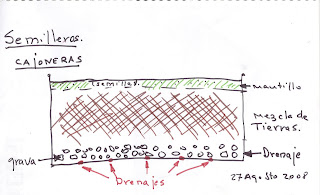 Semilleros.
CAJONERAS
semillas
mantillo
Mezcla de
Tierras.
grava
Drenaje
Drenajes
27 Agosto 2008